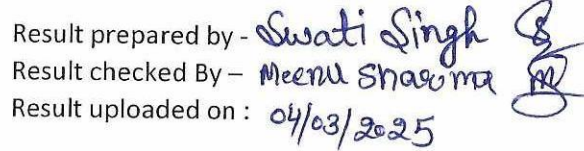 Result prepared by - Swati Singh
Result checked By – Meenu Sharma
Result uploaded on : 04/03/2025